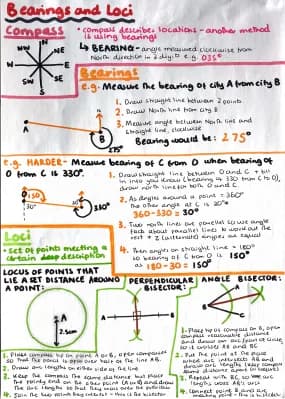 Bearings and Loci
Compass
• compass describe locations - another method
is using bearings
↳ BEARING - angle measured clockwise from
North direction in 3 digits e.g. 035°
N
NE
E
SE
S
SW
W
NW
Bearings
e.g. Measure the bearing of city A from city B
1. Draw straight line between 2 points
2. Draw North line from city B
3. Measure angle between North line and
straight line, clockwise
Bearing would be: 275°
A
B
275°
e.g. HARDER - Measure bearing of C from O when bearing of
O from C is 330°.
1. Draw straight line between O and C + fill
in info you know (bearing is 330 from C to O),
draw north line for both O and C.
2. As angles around a point = 360°
the other angle at C is 30°
360-330 = 30°
3. Two north lines are parallel so use angle
facts about parallel lines to work out the
rest
4. angles on straight line = 180°
so bearing of C from O is 150°
as 180-30 = 150°
O
150
30°
30°
330°
Loci
• set of points meeting a
certain description
LOCUS OF POINTS THAT
LIE A SET DISTANCE AROUND
A POINT:
A
2.5cm
PERPENDICULAR
BISECTOR:
ANGLE BISECTOR:
1. Place compass tip on point A or B, open compasses
so that the pencil is over half of the line AB.
2. Draw arc lengths on either side of the line
3. Keep the compass the same distance but place
the pointy end on the other point (A or B) and draw
the arc lengths so that they cross over the previous
4. Join the two points they intersect - this is the bisector
1. Place tip of compass on B, open
compass reasonable distance
2. Put the point at the place
4. Connect point B and arc
meeting point - this is bisector